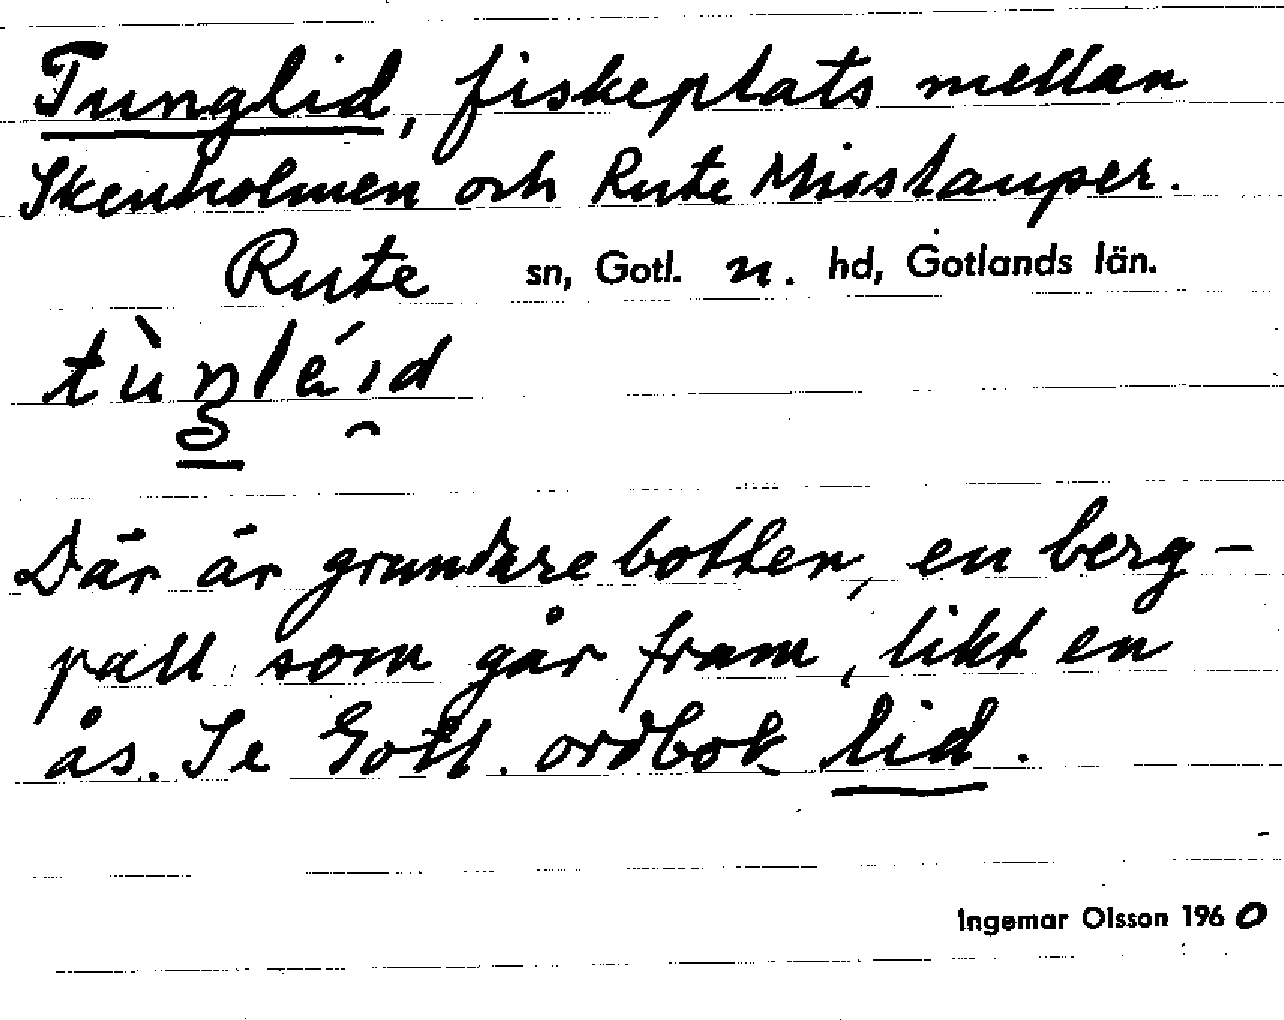 Tunglid, fiskeplats mellan
Skenholmen och Rute Misslauper.
Rute sn, Gotl. n. hd, Gotlands län.
tùŋléid
Där är grundare botten, en berg-
pall som går fram, likt en
ås. Se Gotl. ordbok lid.
Ingemar Olsson 1960